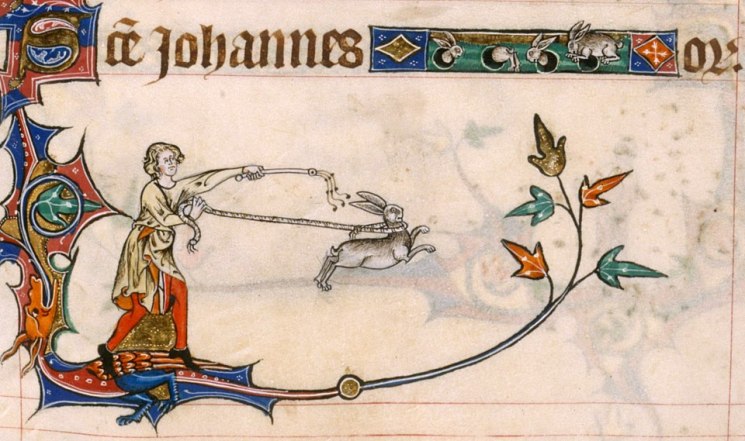 Sc̄e Johannes or.